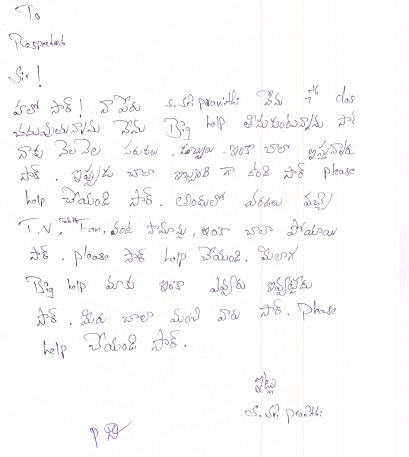 To
Respected
Sir!
హలో సార్! నా పేరు S. Sri pranithi నేను 7th clas
చదువుతున్నాను నేను Big help తీసుకుంటున్నాను సార్
నాకు నెల నెల సరుకులు. డబ్బులు. ఇంకా చాలా ఇస్తున్నారు
సార్. ఇప్పుడు చాలా ఇబ్బంది గా ఉంది సార్ please
help చేయండి సార్. అందులో వరదలు వచ్చి
T.V, table Fan, వంట సామాన్లు, ఇంకా చాలా పోయాయి
సార్. please సార్ help చేయండి. మీలాగ
Big help మాకు ఇంకా ఎవ్వరు ఇవ్వట్లేదు
సార్. మీరు చాలా మంచి వారు సార్. Please
help చేయండి సార్.
ఇట్లు
S. Sri pranithi